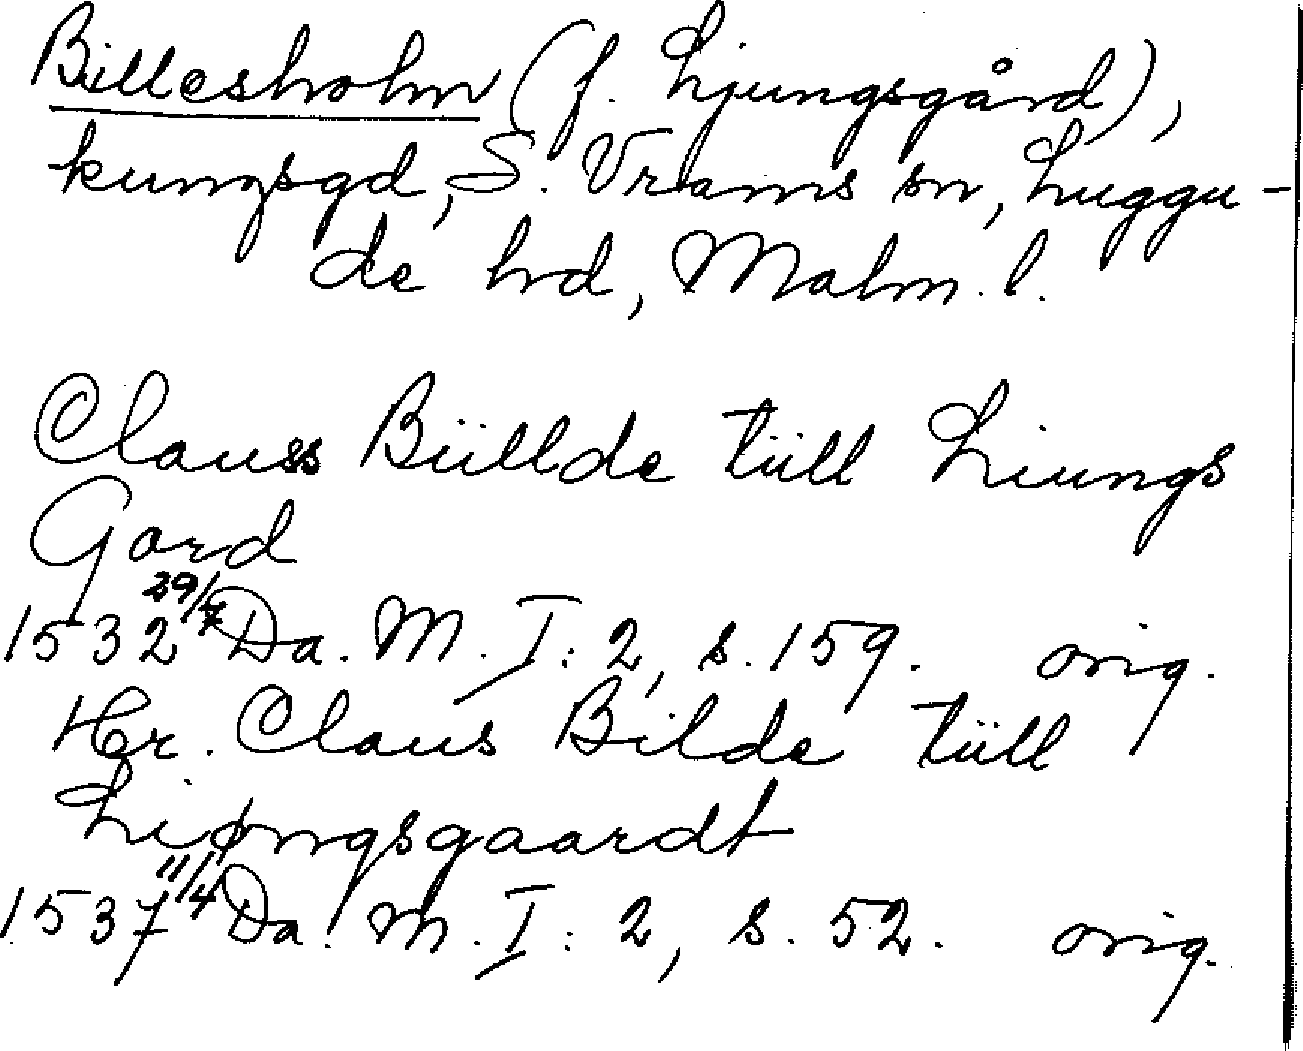 Billesholm (f. Ljungsgård),
kungsgd, S. Vrams sn, Luggu-
de hd, Malm. l.
Clauss Büllde tüll Liungs
Gard
1532 29/7 Da. M. I: 2, s. 159. orig.
Her. Claus Bilde tüll
Liøngsgaardt
1537 11/4 Da. M. I: 2, s. 52. orig.